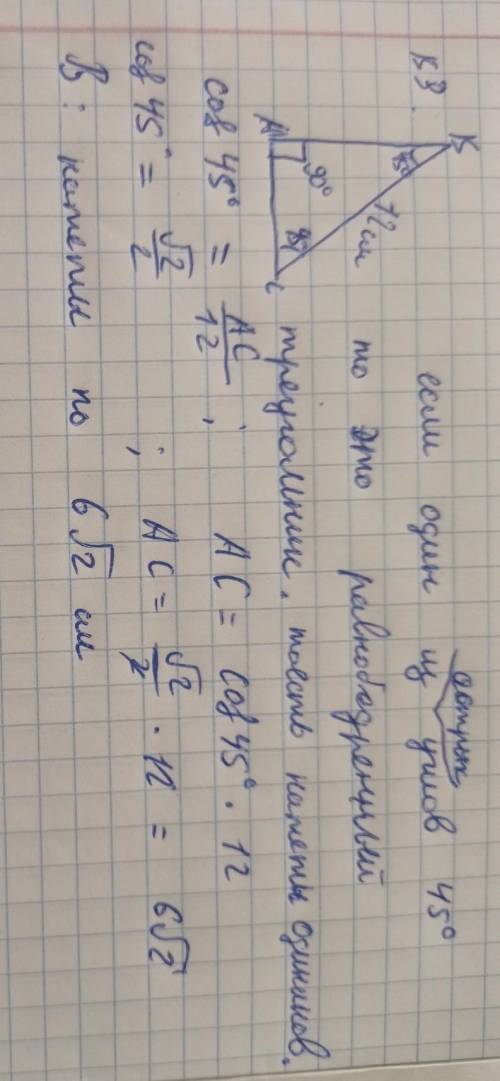 №3.
B
45°
12 см
90°
45°
A
C
если один из острых углов 45°
то это равнобедренный
треугольник, тоесть катеты одинаков.
cos 45° = AC/12 ; AC = cos 45° · 12
cos 45° = √2/2 ; AC = √2/2 · 12 = 6√2
В: катеты по 6√2 см